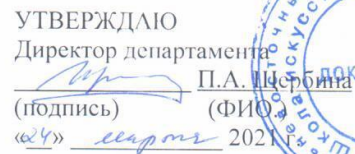 УТВЕРЖДАЮ
Директор департамента
П.А. Щербина
(подпись) (ФИО)
«24» марта 2021 г.